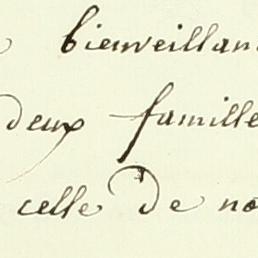 bienveillan
deux famille
celle de no